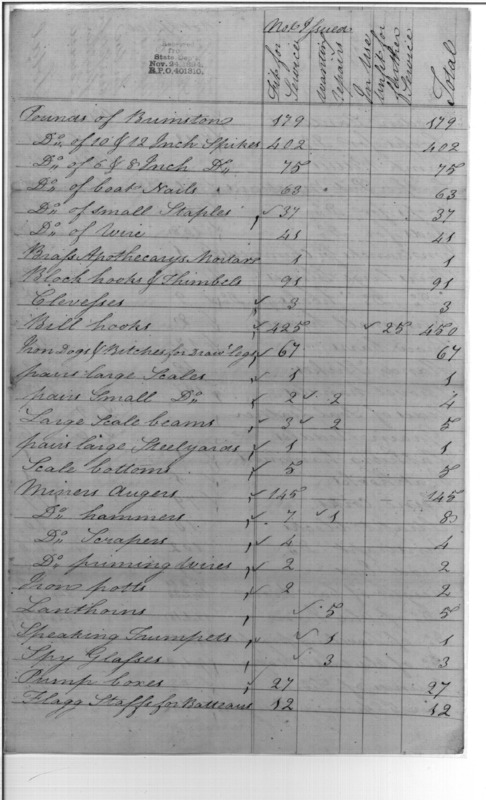 Received
from
State Dep't.
Nov. 24, 1894.
R.P.O. 401310.
Not Issued
Fit for Service
wanting repairs
unfit for further Service
Total
Pounds of Brimston 179 179
Do. of 10 & 12 Inch Spikes 402 402
Do. of 6 & 8 Inch Do. 75 75
Do. of boat Nails 63 63
Do. of small Staples 37 37
Do. of Wire 41 41
Brass Apothecarys Mortar 1 1
Block hooks & Thimbels 91 91
Clevesses 3 3
Bill hooks 425 25 450
Iron Dogs & Bitches for draw'g logs 67 67
pairs large Scales 1 1
pairs Small Do. 2 2 4
Large Scale beams 3 2 5
pairs large Steelyards 1 1
Scale bottoms 5 5
Miners Augers 145 145
Do. hammers 7 1 8
Do. Scrapers 4 4
Do. priming wires 2 2
Iron potts 2 2
Lanthorns 5 5
Speaking Trumpets 1 1
Spy Glasses 3 3
Pump boxes 27 27
Flagg Staffs for Batteaus 12 12